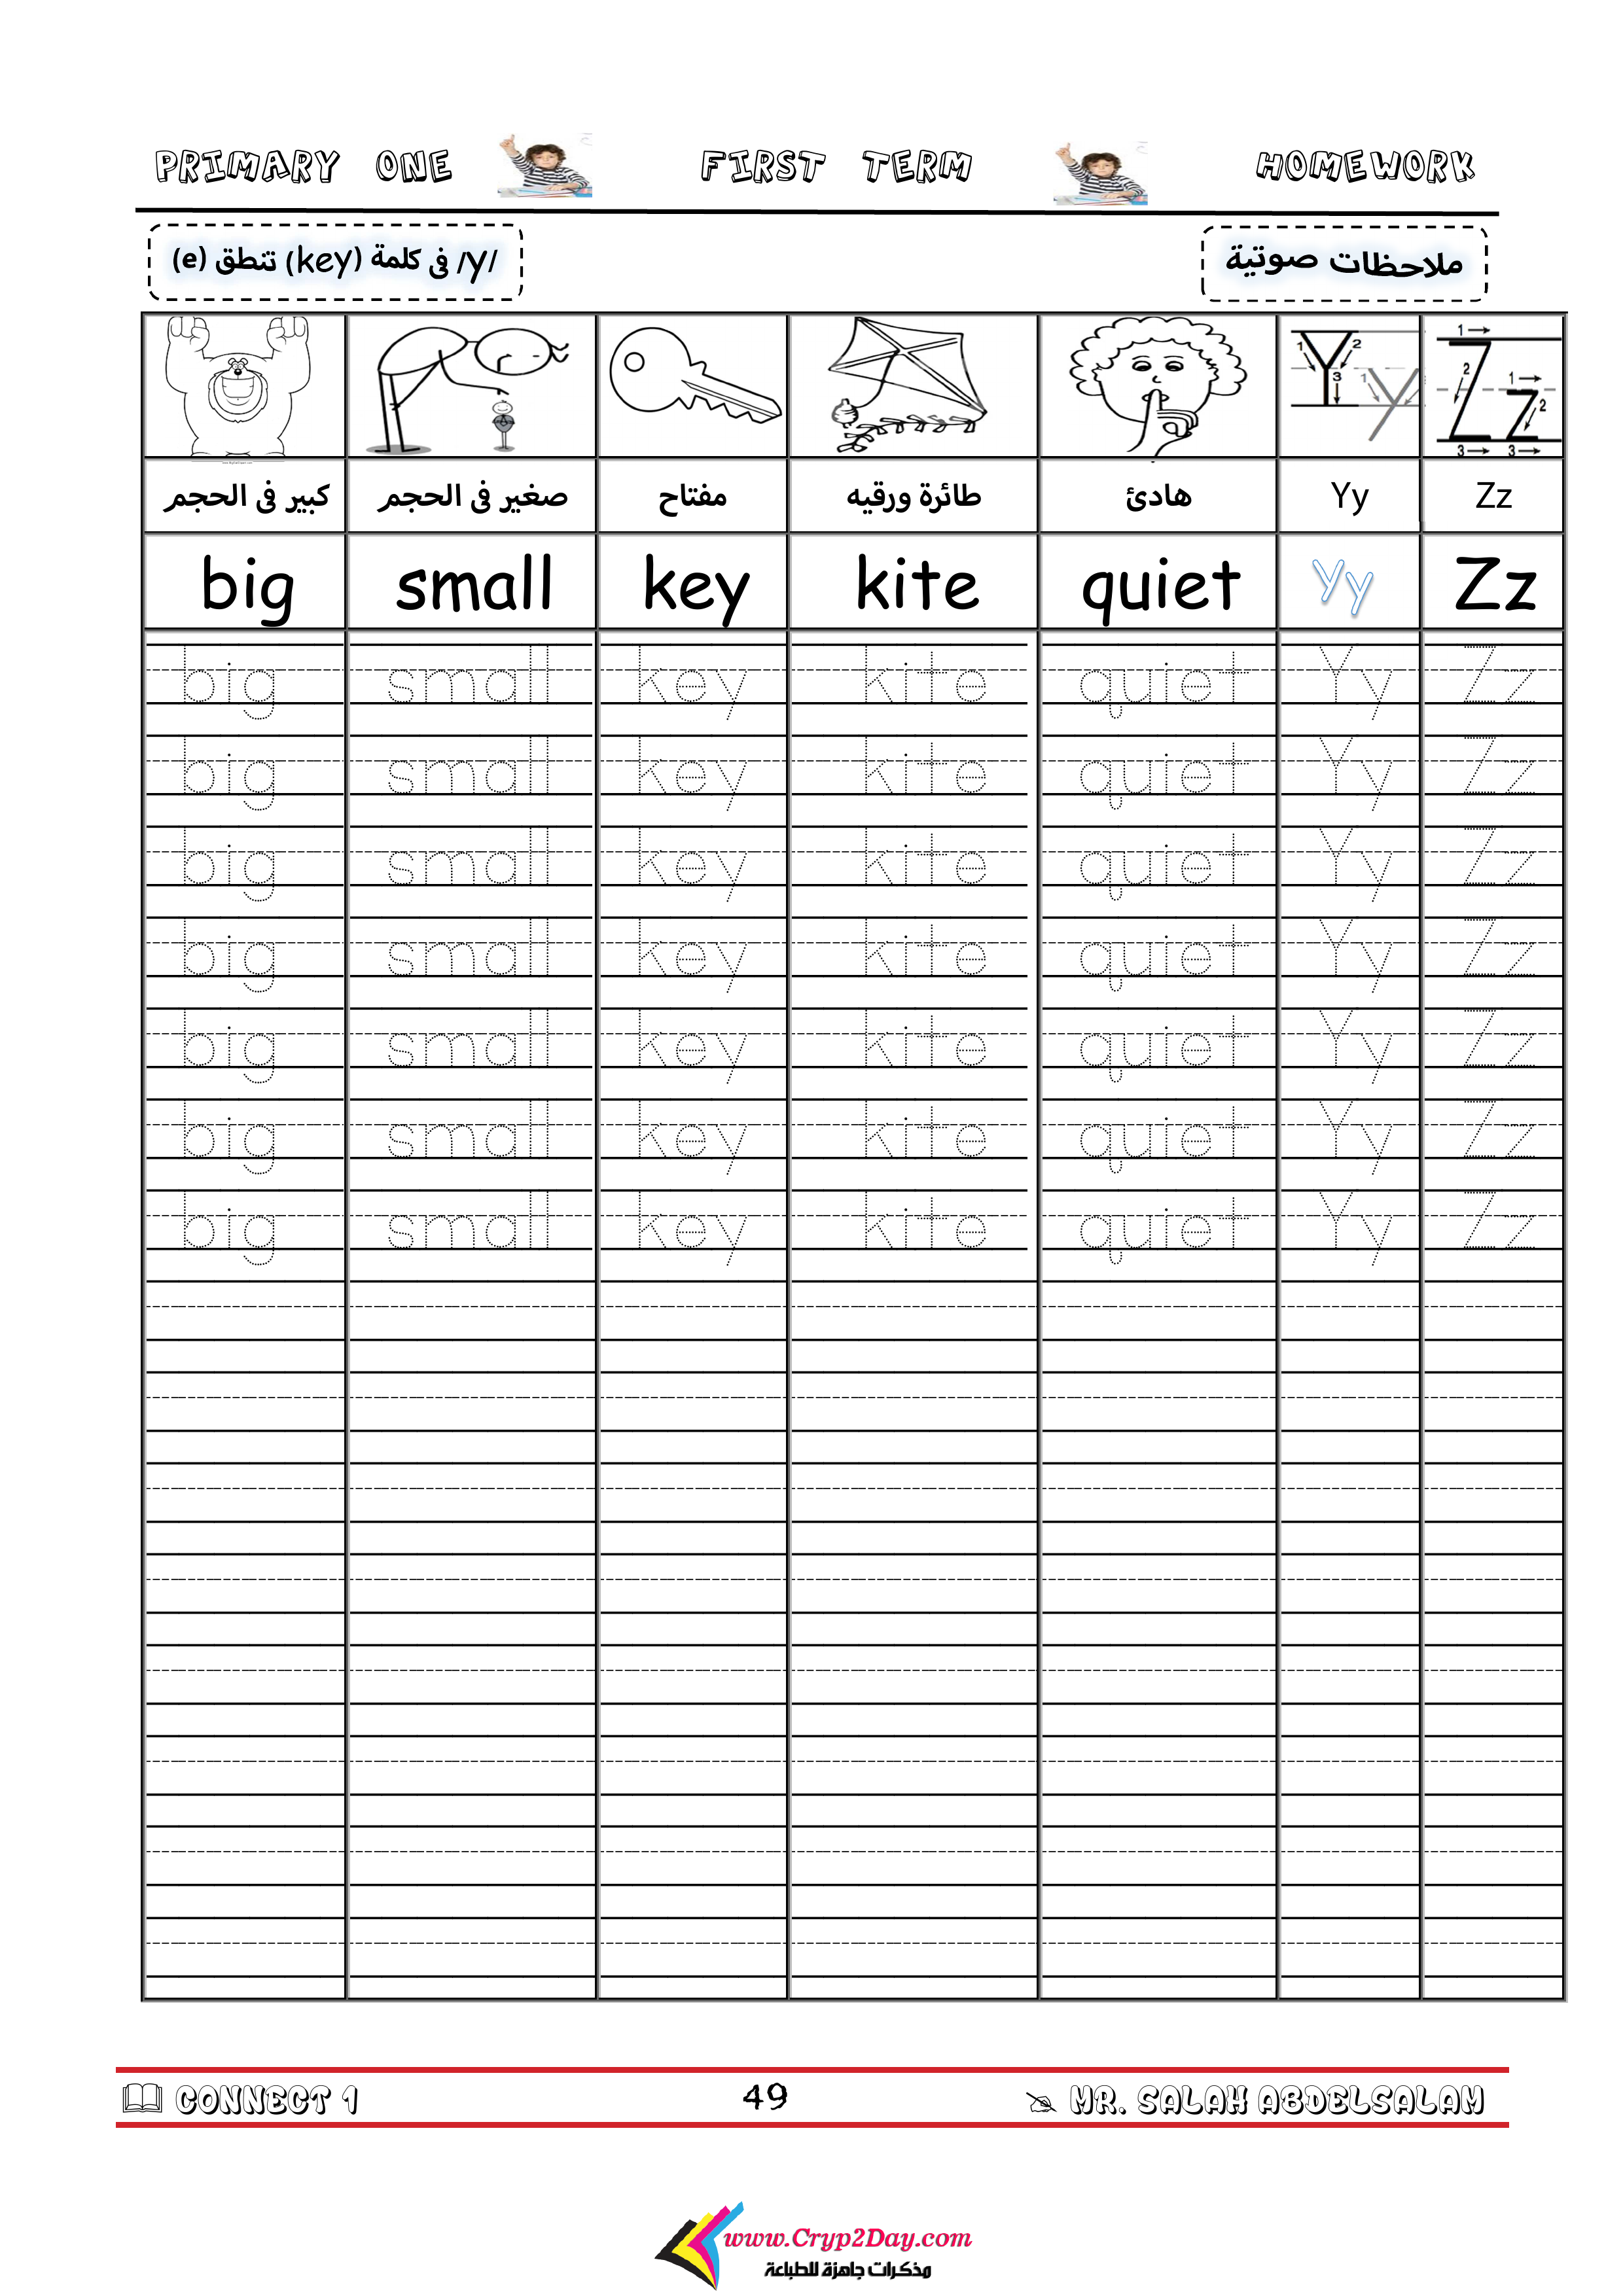 PRIMARY ONE FIRST TERM HOMEWORK
ملاحظات صوتية
/y/ فى كلمة (key) تنطق (e)
1 2 3 1
1 2 3 1 2 3
كبير فى الحجم صغير فى الحجم مفتاح طائرة ورقيه هادئ Yy Zz
big small key kite quiet Yy Zz
big small key kite quiet Yy Zz
big small key kite quiet Yy Zz
big small key kite quiet Yy Zz
big small key kite quiet Yy Zz
big small key kite quiet Yy Zz
big small key kite quiet Yy Zz
big small key kite quiet Yy Zz
CONNECT 1 49 MR. SALAH ABDELSALAM
www.Cryp2Day.com
مذكرات جاهزة للطباعة